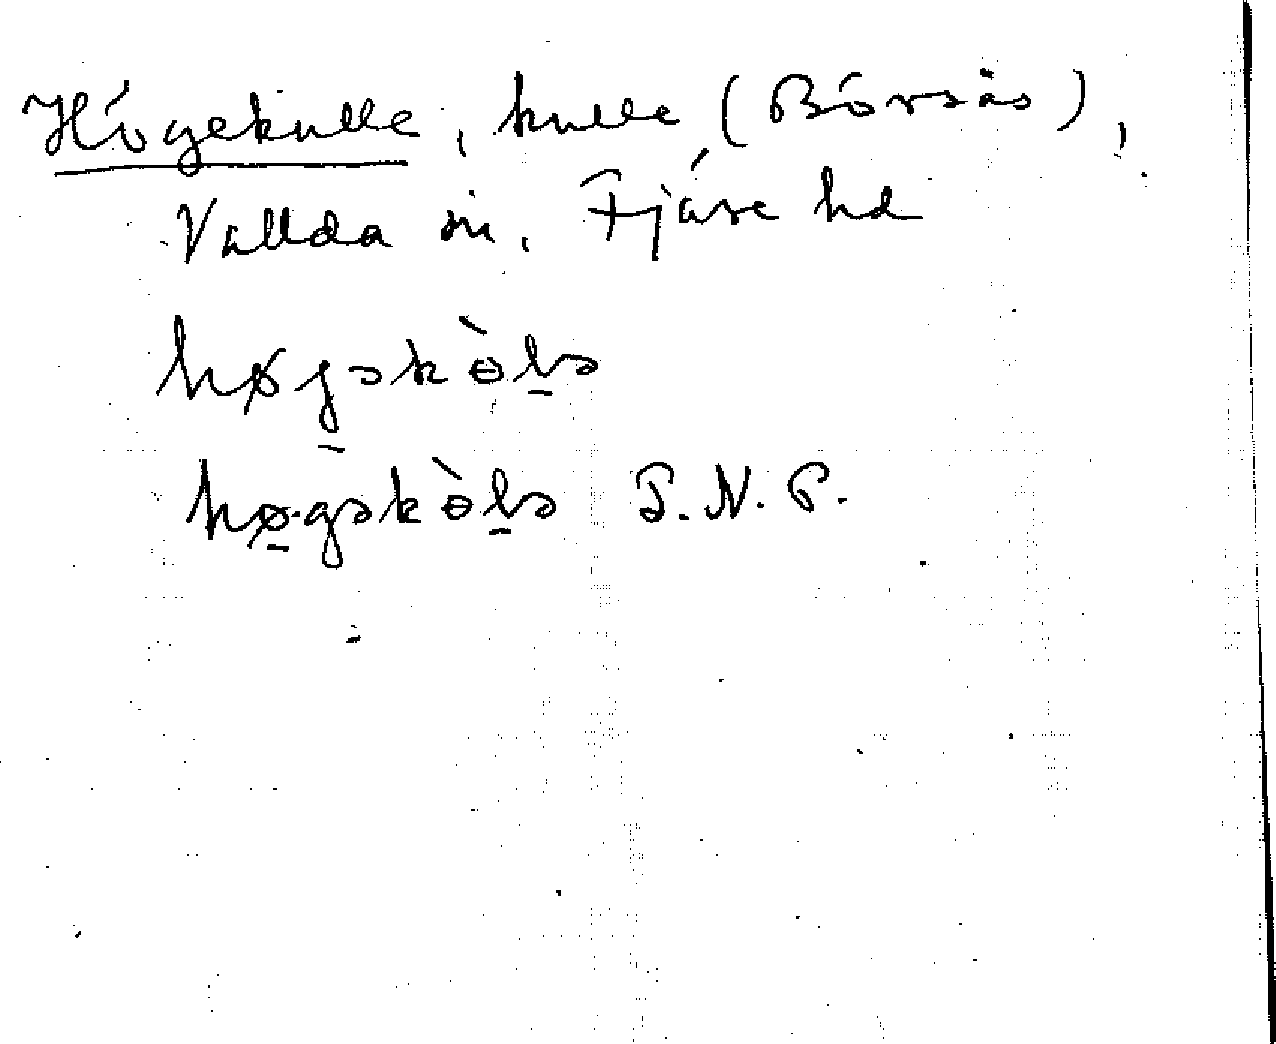 Högekulle, kulle (Börsås),
Vallda sn. Fjäre hd
høgəkɵ̀lə
hø·gəkɵ̀lə S.N.P.